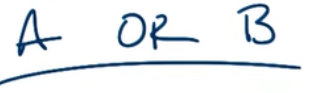 A OR B